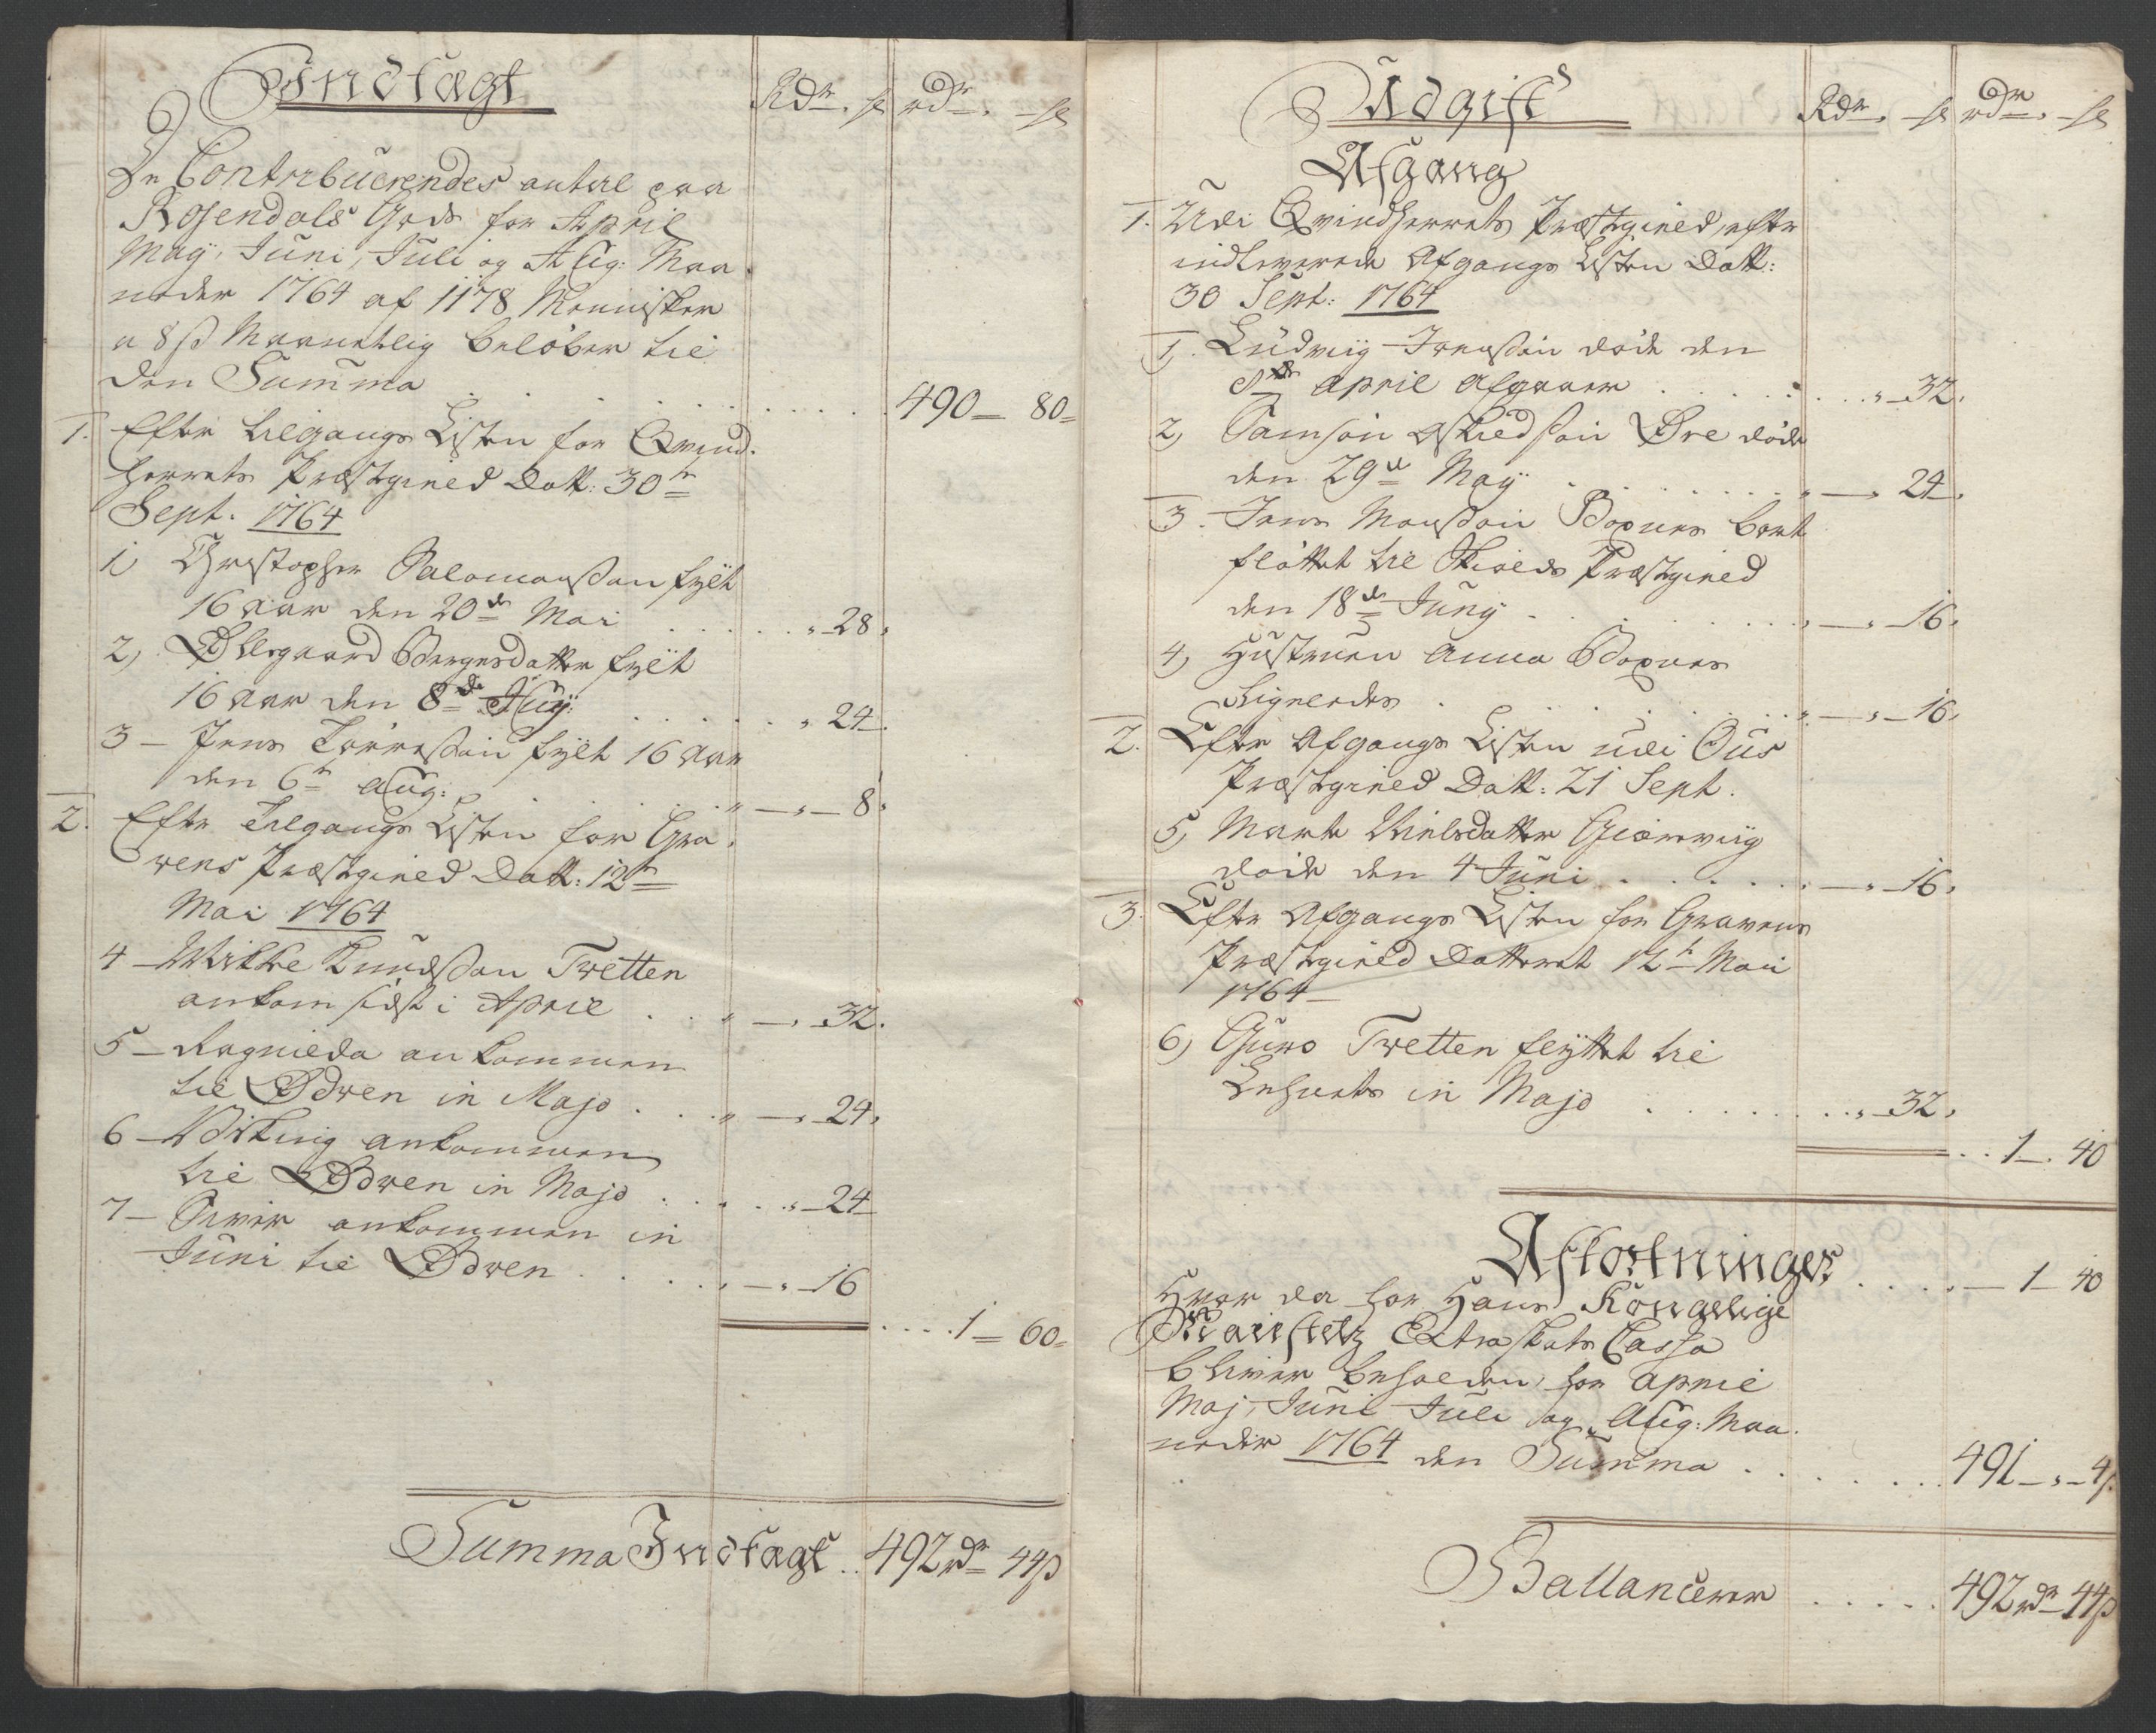 Indtægt
Rdr. ß rdr. ß
De Contribuerendes antal paa
Rosendals Gods for April
May, Juni, Juli og Aug: Maa
neder 1764 af 1178 Mennisker
a 8 ß Maanetlig beløber til
den Summa . . . . . . 490 – 80 –
1. Efter tilgangs Listen for Qvind-
herrets Præstegield Datt: 30te
Sept. 1764
1) Christopher Salamonssøn fylt
16 aar den 20de Mai . . . . . „ – 28 „
2) Ølegaard Børgesdatter fylt
16 aar den 8de Juny: . . . . . „ 24 –
3 – Jens Tørresøn fylt 16 aar
den 6te Aug: . . . . . „ – „ – 8 „
2. Efter Tilgangs Listen for Gra-
vens Præstegield Datt: 12te
Mai 1764
4 – Knudssøn Tvetten
ankom sidst i April . . . „ – „ 32 .
5 – Ragnilda ankommen
til Odven in Majo . . . „ – „ 24 „
6 – Viking ankommen
til Odven in Majo . . . . „ – 24 –
7 – Siver ankommen in
Juni til Odven . . . . . „ – „ 16
. . . . 1 – 60 –
Summa Indtægt . . 492 rdr 44 ß
Udgift
Rdr. ß rdr. ß
Afgang
1. Udi Qvindherrets Præstegield, efter
indleverede Afgangs Listen Datt:
30 Sept: 1764
1). Ludvig Ivenssøn døde den
8de April afgaaer . . . . . . . „ – 32 .
2) Samson Øre døde
den 29de May . . . . . . . „ – „ 24 .
3. Jens Monssøn Bopnes bort
fløttet til Præstegield
den 18de Juny . . . . . . . „ – „ – 16 .
4) Hustruen Anna Bopnes
ligeledes . . . . . . . „ – „ – 16 .
2. Efter Afgangs Listen udi Ous
Præstegield Datt: 21 Sept.
5) Marte Nielsdatter Giærevig
døde den 4 Juni . . . . . . – „ – 16 .
3. Efter Afgangs Listen for Gravens
Præstegield Datteret 12te Mai
1764 –
6) Guro Tvetten flyttet til
in Majo . . . . . . . „ – 32 .
. . 1 – . 40
Afkortninger . . . . – 1 – 40
Hvor da for Hans Kongelige
Maiestetz Extraskats Cassa
bliver beholden for April
Maj, Juni Juli og Aug: Maa-
neder 1764 den Summa . . . . . . . 491 – „ – 4 ß.
Ballancerer . . . . . 492 rdr – 44 ß